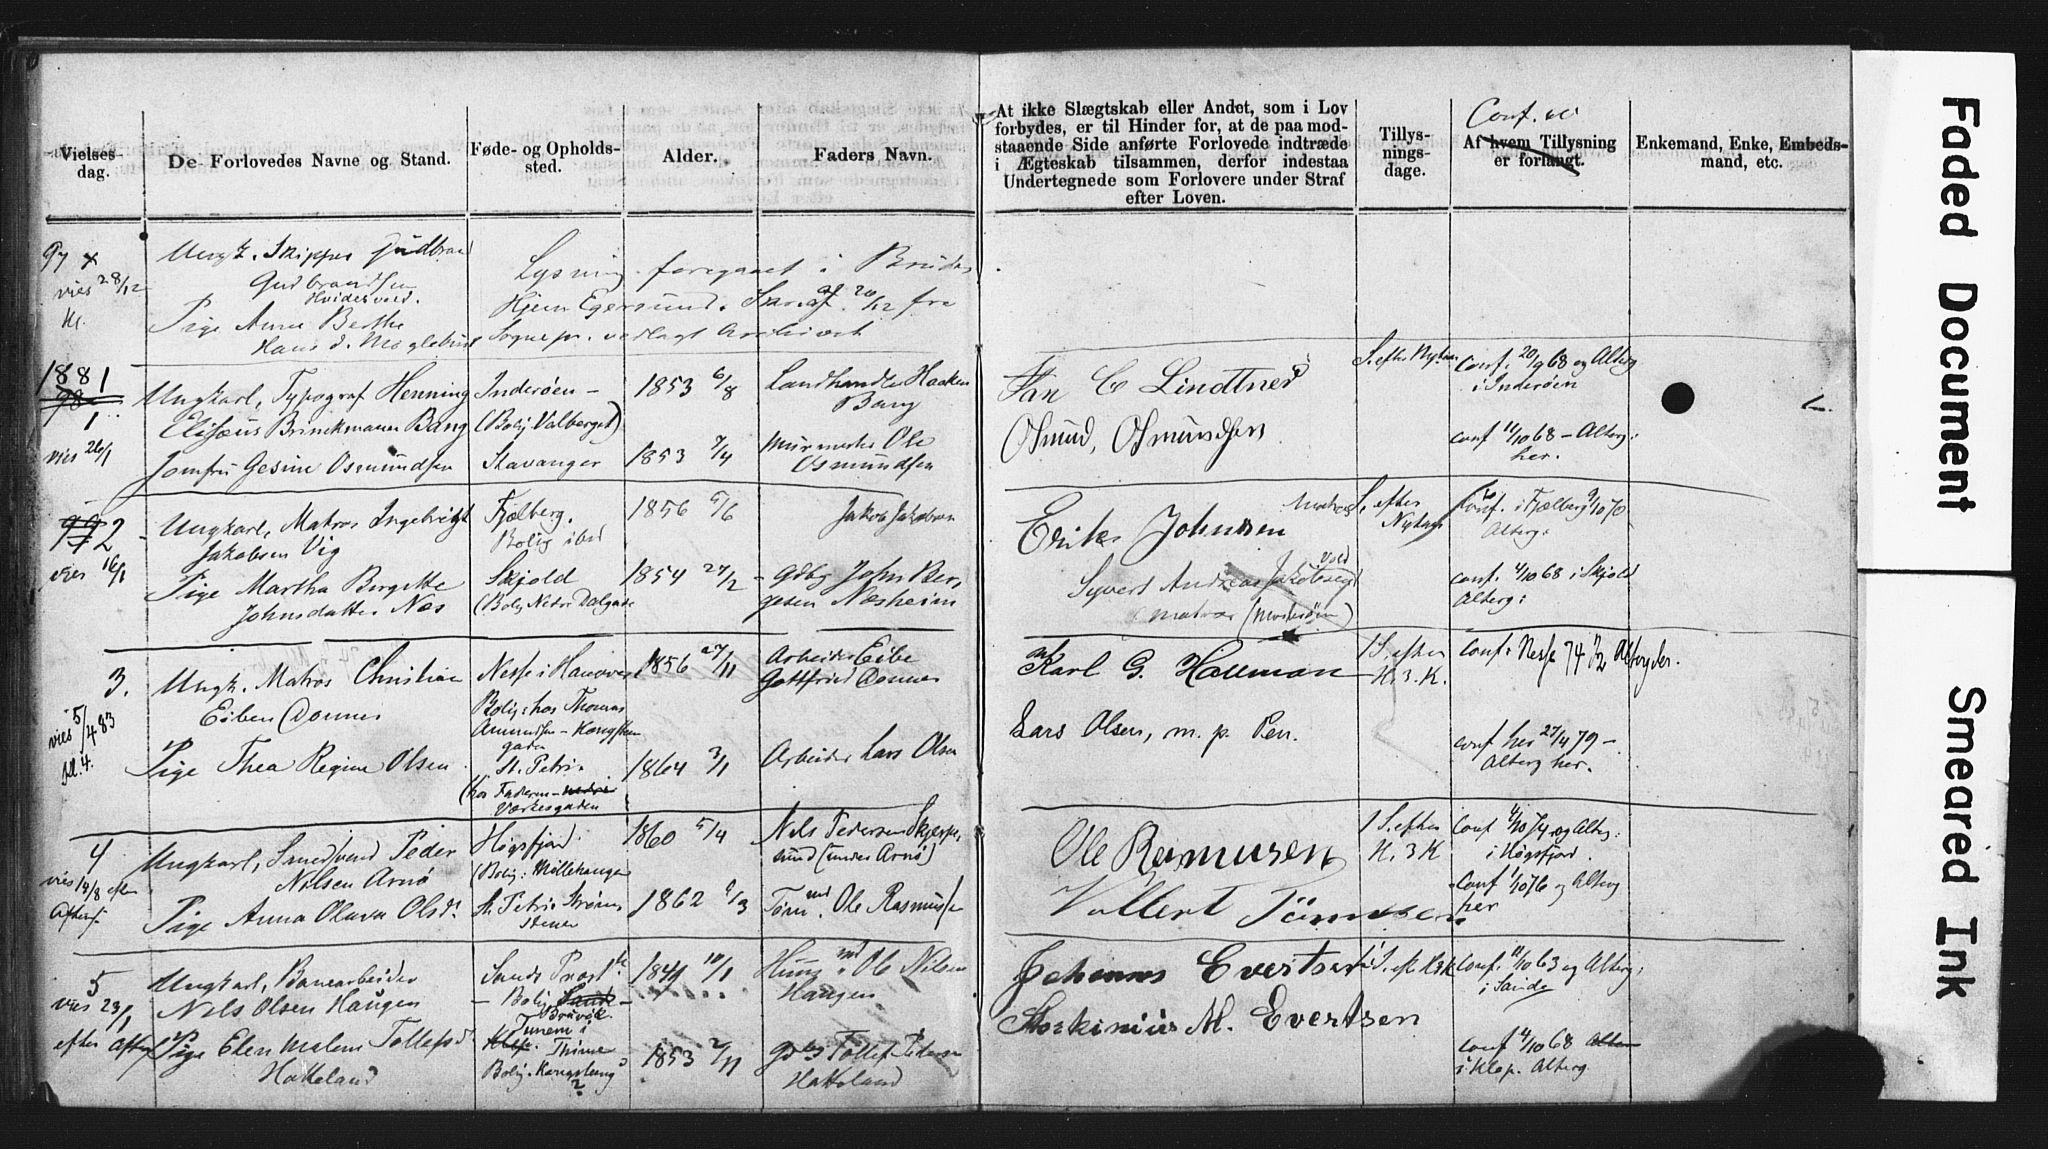 Vielses-
dag.
De Forlovedes Navne og Stand.
Føde- og Opholds-
sted.
Alder.
Faders Navn.
At ikke Slægtskab eller Andet, som i Lov
forbydes, er til Hinder for, at de paa mod-
staaende Side anførte Forlovede indtræde
i Ægteskab tilsammen, derfor indestaa
Undertegnede som Forlovere under Straf
efter Loven.
Tillys-
nings-
dage.
Conf.
Af hvem Tillysning
er forlangt.
Enkemand, Enke, Embeds-
mand, etc.
97 x
vies 28/12
Kl.
Ungk. Skipper Gudbran
Gudbrandsen
Hvidesved.
Pige Anne Berthe
Hans d. Møglebust
Lysning foregaaet i Brudens
Hjem Egersund. Skr. af 20/12 fra
Sognepr. vedlagt Archivet
1881
98
1
vies 26/1
Ungkarl, Typograf Henning
Elisæus Brinckmann Bang
Jomfru Gesine Osmundsen
Inderøen -
(Bolig Valberget)
Stavanger
1853 6/8
1853 7/4
Landhandler Haaken
Bang
Murmester Ole
Osmundsen
Jan C Lindtner
Osmund Osmundsen
S. efter Nytaar
Conf. 20/9 68 og Altberg
i Inderøen
conf 11/10 68 - Altberg:
her.
99 2
vies 16/1
Ungkarl, Matros Ingebrigt
Jakobsen Vig
Pige Martha Bergitte
Johnsdatter Næs
Fjelberg.
Bolig ibid
Skjold
(Bolig Nedre Dalgade
1856 5/6
1854 27/2
Jakob Jakobsen
Gdbr John Ber-
gesen Næsheim
Erik Johnsen
Syvert Andreas Jakobsen
matros
S. efter
Nytaar
Conf. i Fjelberg 9/10 70
Altberg:
conf. 4/10 68 i Skjold
Altberg:
3.
vies 5/4 83
kl. 4.
Ungk. Matros Christian
Eiben Donner
Pige Thea Regine Olsen
Nesse i Hanover
Bolig: hos Thomas
Amundsen - Kongsten
gaden
St. Petri.
(hos Faderen - nedre
Værksgaden
1856 27/11
1864 3/1
Arbeider Eibe
Gottfried Donner
Arbeider Lars Olsen
Karl G. Hallman
Lars Olsen, m. p. Pen.
1 S. efter
H. 3. K.
Conf. Nesse 74
conf her 27/4 79 -
Altberg her.
4
vies 14/8 efter
Aftens.
Ungkarl, Smedsvend Peder
Nilsen Arnø
Pige Anna Olava Olsdr
Høgsfjord.
(Bolig: Møllehaugen
St. Petri. Strøm-
stenen
1860 5/4
1862 9/3
Nils Pedersen Skjerpe-
sund (under Arnø)
Tømmd. Ole Rasmussen
Ole Rasmusen
Vollert Tønnesen
1 S. efter
H. 3 K
Conf 4/10 74 og Altberg:
i Høgsfjord.
Conf 1/10 76 og Altberg
her
5
vies 23/1
efter Aftens
Ungkarl, Banearbeider
Nils Olsen Haugen
Pige Elen Malene Tollefsdr
Hakeland
Sande Præstg.
- Bolig Sande -
Bruvik.
Tunem i
Klep. Thime
Bolig. Kongsteng
2
1841 10/1
1853 2/11
Husmd. Ole Nilsen
Haugen
Gdbr Tollef Pedersen
Hakeland
Johannes Evertsen
M. Evertsen
1 S. eft H3K
Conf. 11/10 63 og Altberg:
i Sande
conf 4/10 68
i Klep. Altberg
Faded Document
Smeared Ink